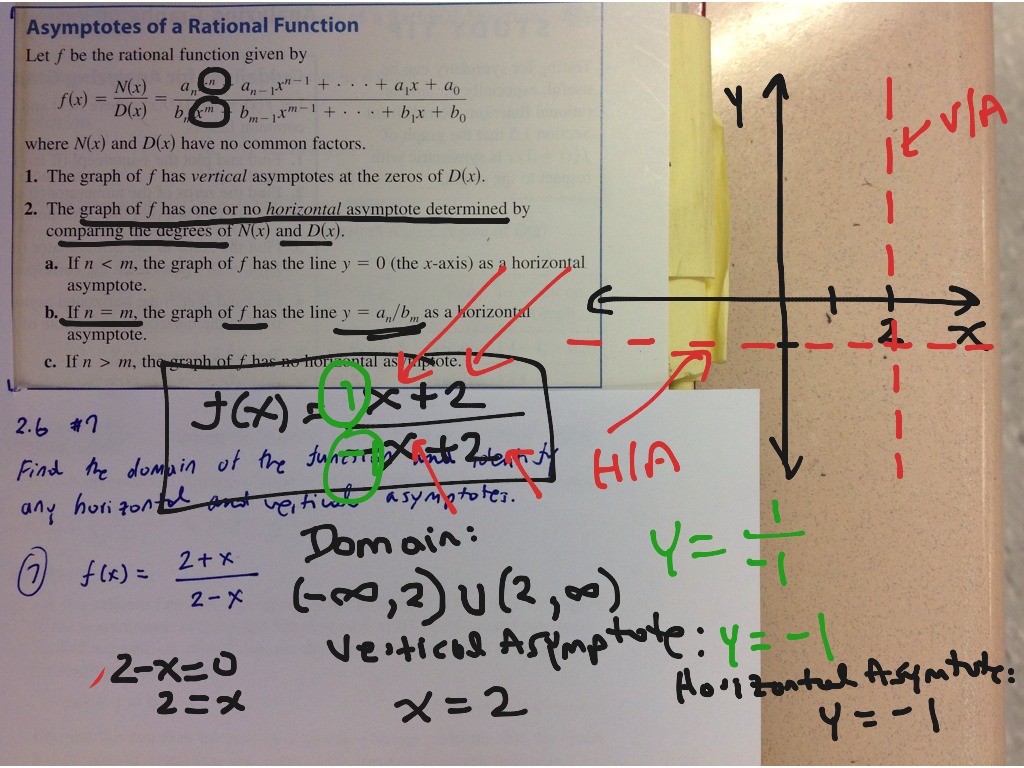 Asymptotes of a Rational Function
Let f be the rational function given by
f(x) = N(x)/D(x) = aₙxⁿ + aₙ₋₁xⁿ⁻¹ + · · · + a₁x + a₀ / bₘxᵐ + bₘ₋₁xᵐ⁻¹ + · · · + b₁x + b₀
where N(x) and D(x) have no common factors.
1. The graph of f has vertical asymptotes at the zeros of D(x).
2. The graph of f has one or no horizontal asymptote determined by
comparing the degrees of N(x) and D(x).
a. If n < m, the graph of f has the line y = 0 (the x-axis) as a horizontal
asymptote.
b. If n = m, the graph of f has the line y = aₙ/bₘ as a horizontal
asymptote.
c. If n > m, the graph of f has no horizontal asymptote.
f(x) = 1x+2 / -1x+2
2.6 #7
Find the domain of the function and identify
any horizontal and vertical asymptotes.
7 f(x) = 2+x / 2-x
2-x=0
2=x
Domain:
(-∞,2) ∪ (2,∞)
Vertical Asymptote:
x = 2
Y
V/A
2
X
H/A
y = 1/-1
y = -1
Horizontal Asymtote:
y = -1